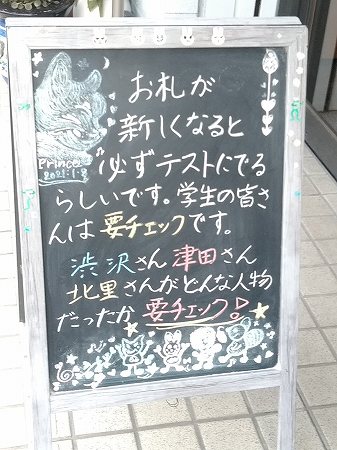 お札が
新しくなると
必ずテストにでる
らしいです。学生の皆さ
んは要チェックです。
渋沢さん津田さん
北里さんがどんな人物
だったか要チェック!
Prince
2021.1.8